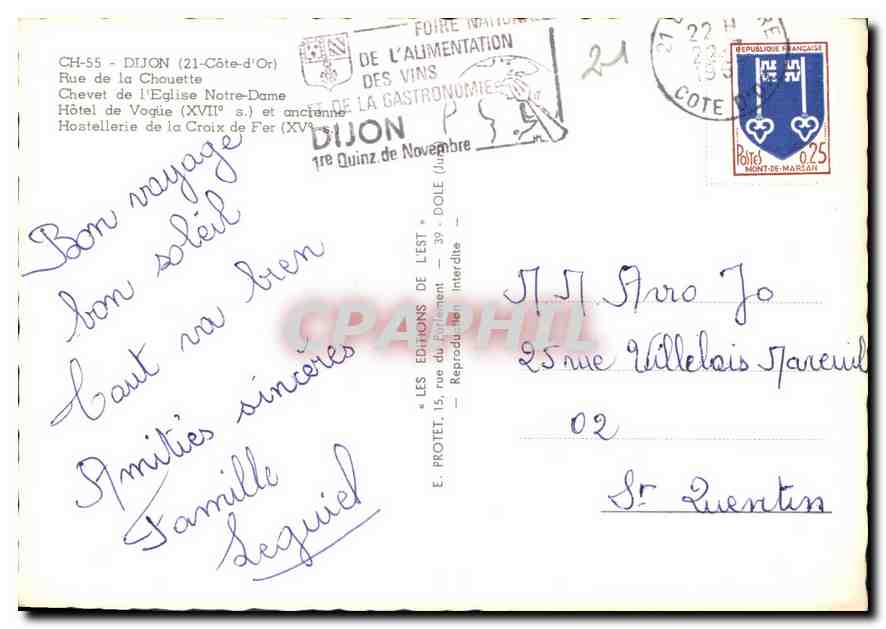 CH-55 - DIJON (21-Côte-d'Or)
Rue de la Chouette
Chevet de l'Eglise Notre-Dame
Hôtel de Vogüe (XVII° s.) et ancienne
Hostellerie de la Croix de Fer (XV° s.)
FOIRE NATIONALE
DE L'ALIMENTATION
DES VINS
ET DE LA GASTRONOMIE
DIJON
1re Quinz. de Novembre
21
22 H
COTE D'OR
REPUBLIQUE FRANÇAISE
POSTES 0,25
MONT-DE-MARSAN
Bon voyage
bon soleil
Tout va bien
Amitiés sincères
Famille
« LES EDITIONS DE L'EST »
E. PROTET, 15, rue du Parlement — 39 - DOLE (Jura)
— Reproduction Interdite —
CPAPHIL
MM Arro Jo
25 rue Villebois Mareuil
02
St Quentin